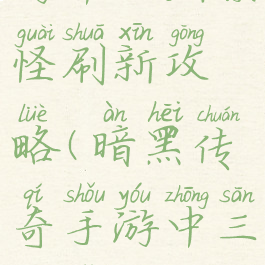 guài shuā xīn gōng
怪刷新攻
lüè àn hēi chuán
略(暗黑传
qí shǒu yóu zhōng sān
奇手游中三